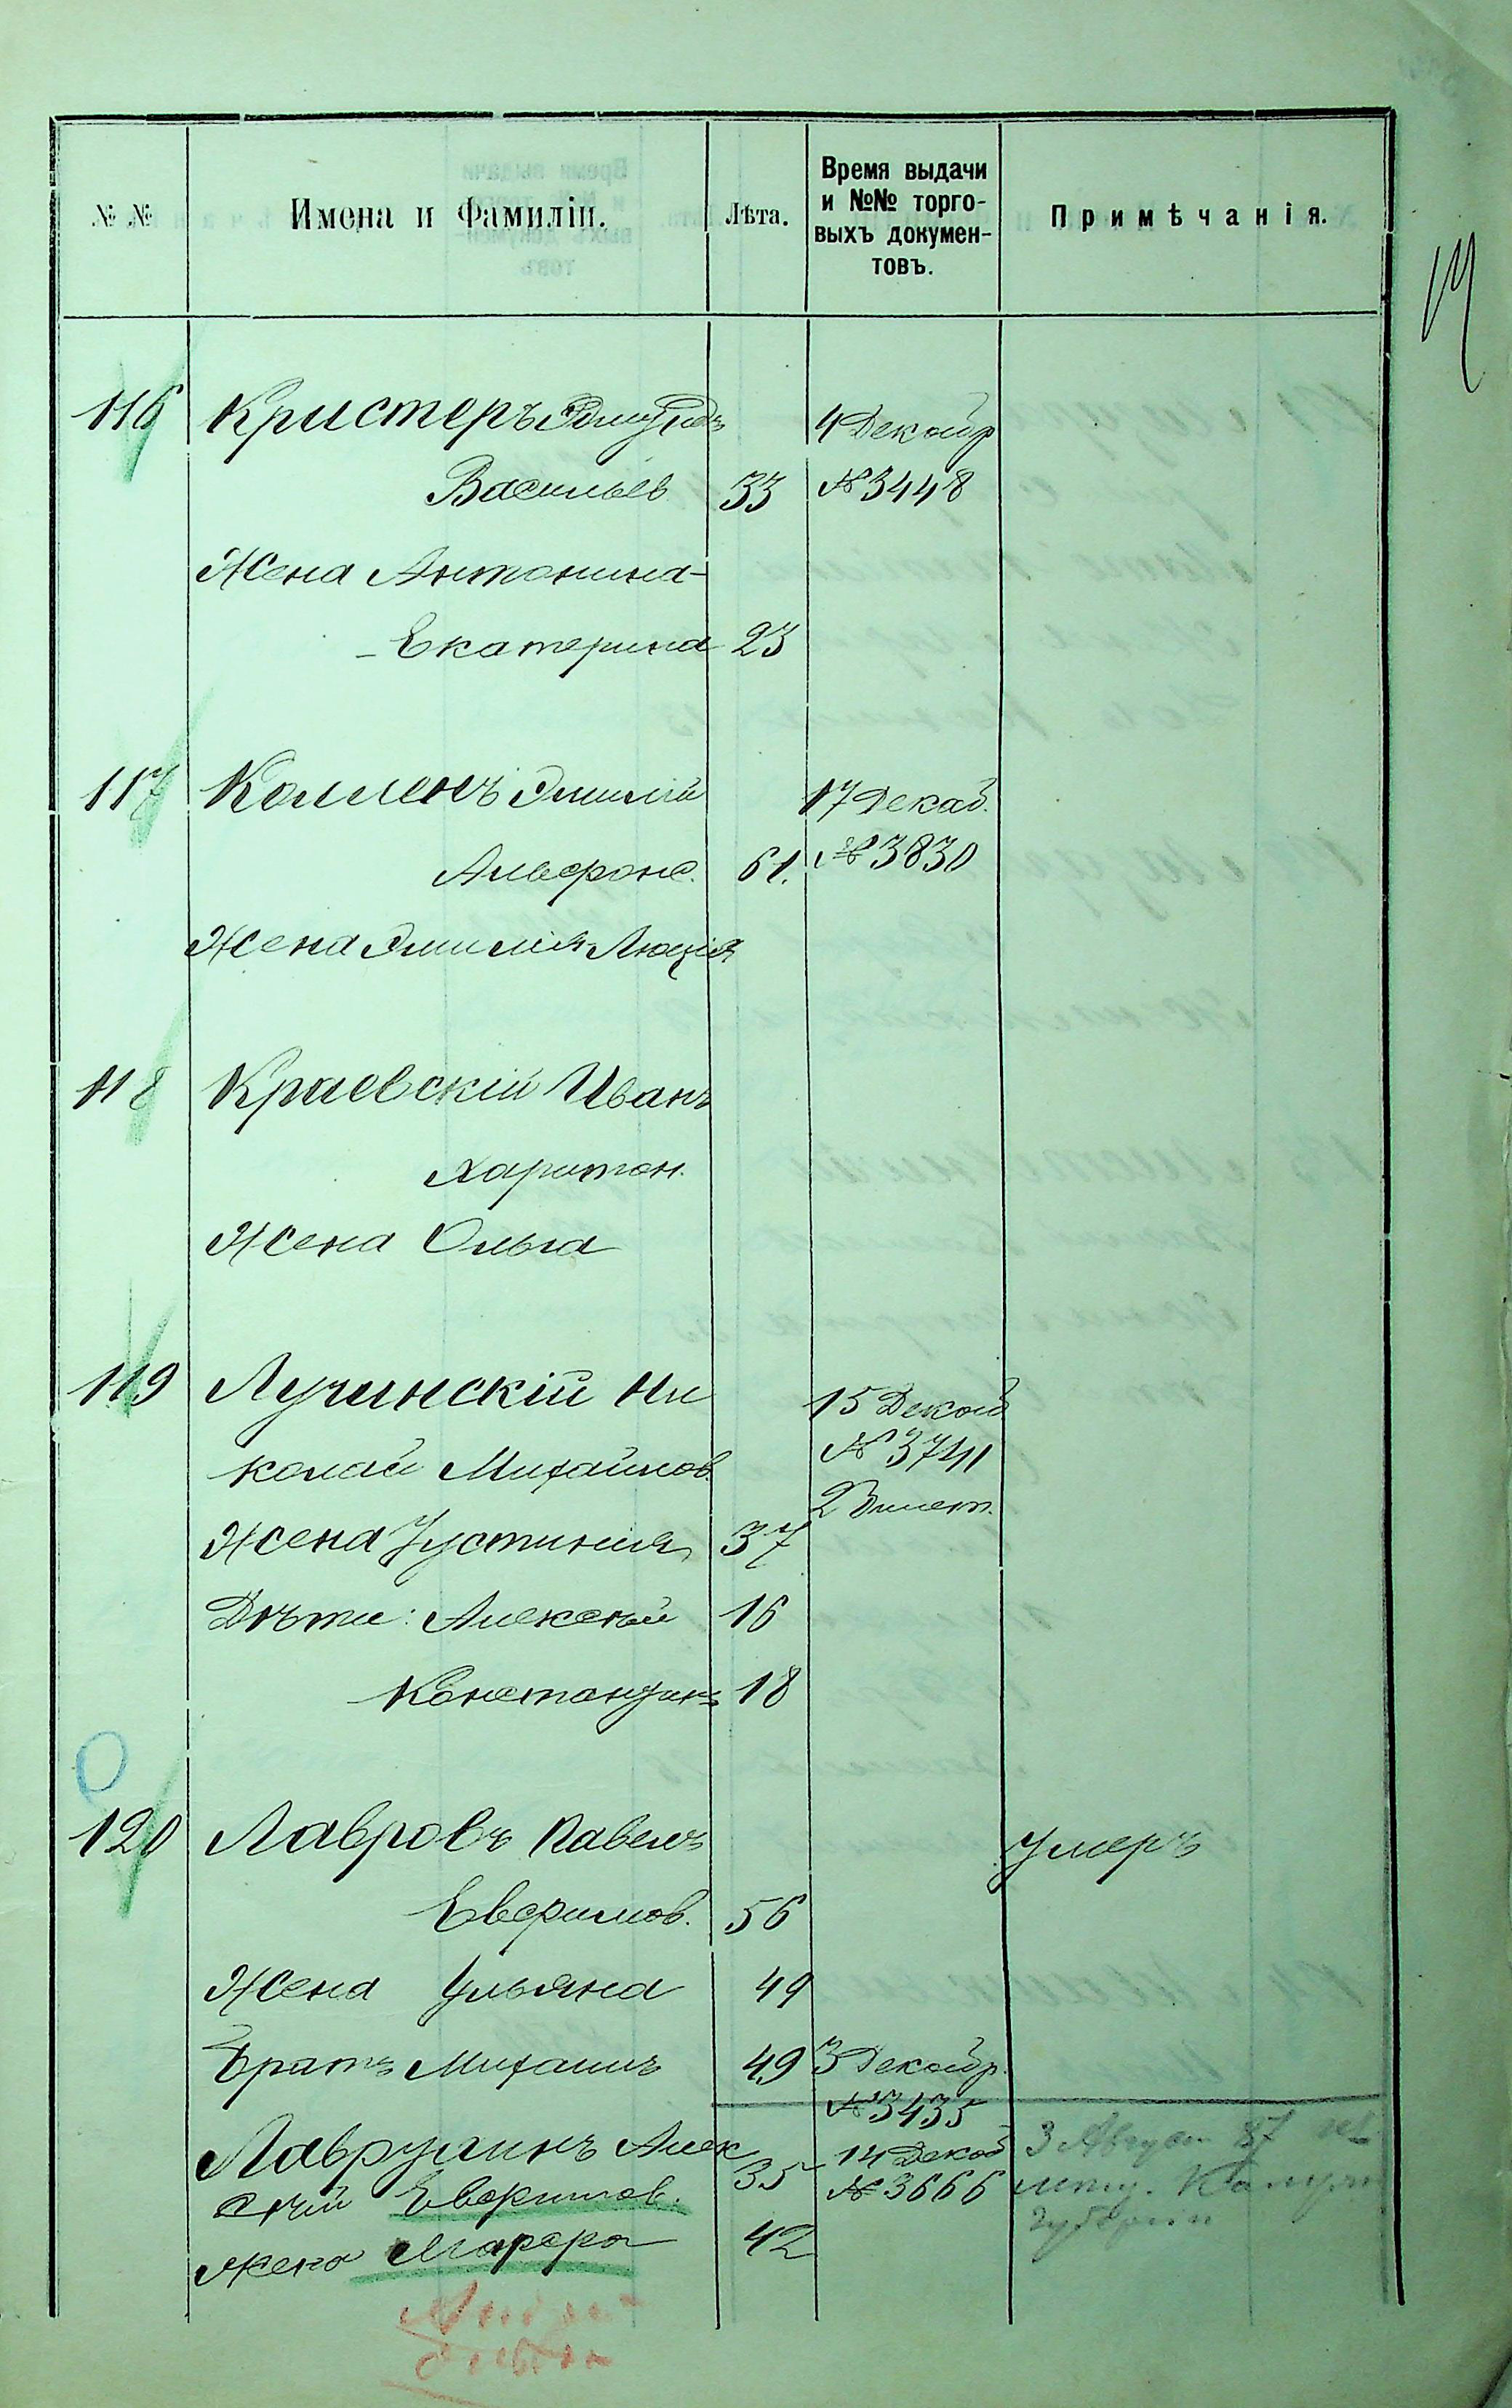 № № Имена и Фамиліи. Лѣта. Время выдачи и №№ торго-выхъ докумен-товъ. Примѣчанія.
116 Кристеръ Эдмундъ 4 Декабр
Васильев 33 № 3448
Жена Антонина-
-Екатерина 23
117 Эмилій 17 Декаб.
Альфонс. 61. № 3830
Жена Эмилія-Люція
118 Краевскій Иванъ
Харитон.
Жена Ольга
119 Лучинскій Ни
колай Михайлов. 15 Декаб
№ 3741
2 Билет.
Жена Устинія 37
Дѣти: Алексѣй 16
Константинъ 18
120 Лавровъ Павелъ Умеръ
Евфимов. 56
Жена Ульяна 49
Братъ Михаилъ 49 3 Декабр.
№ 3435
Лаврушинъ Алек
сѣй Евфимов. 35 14 Декаб
№ 3666
3 Август 87
жена Марфа 42